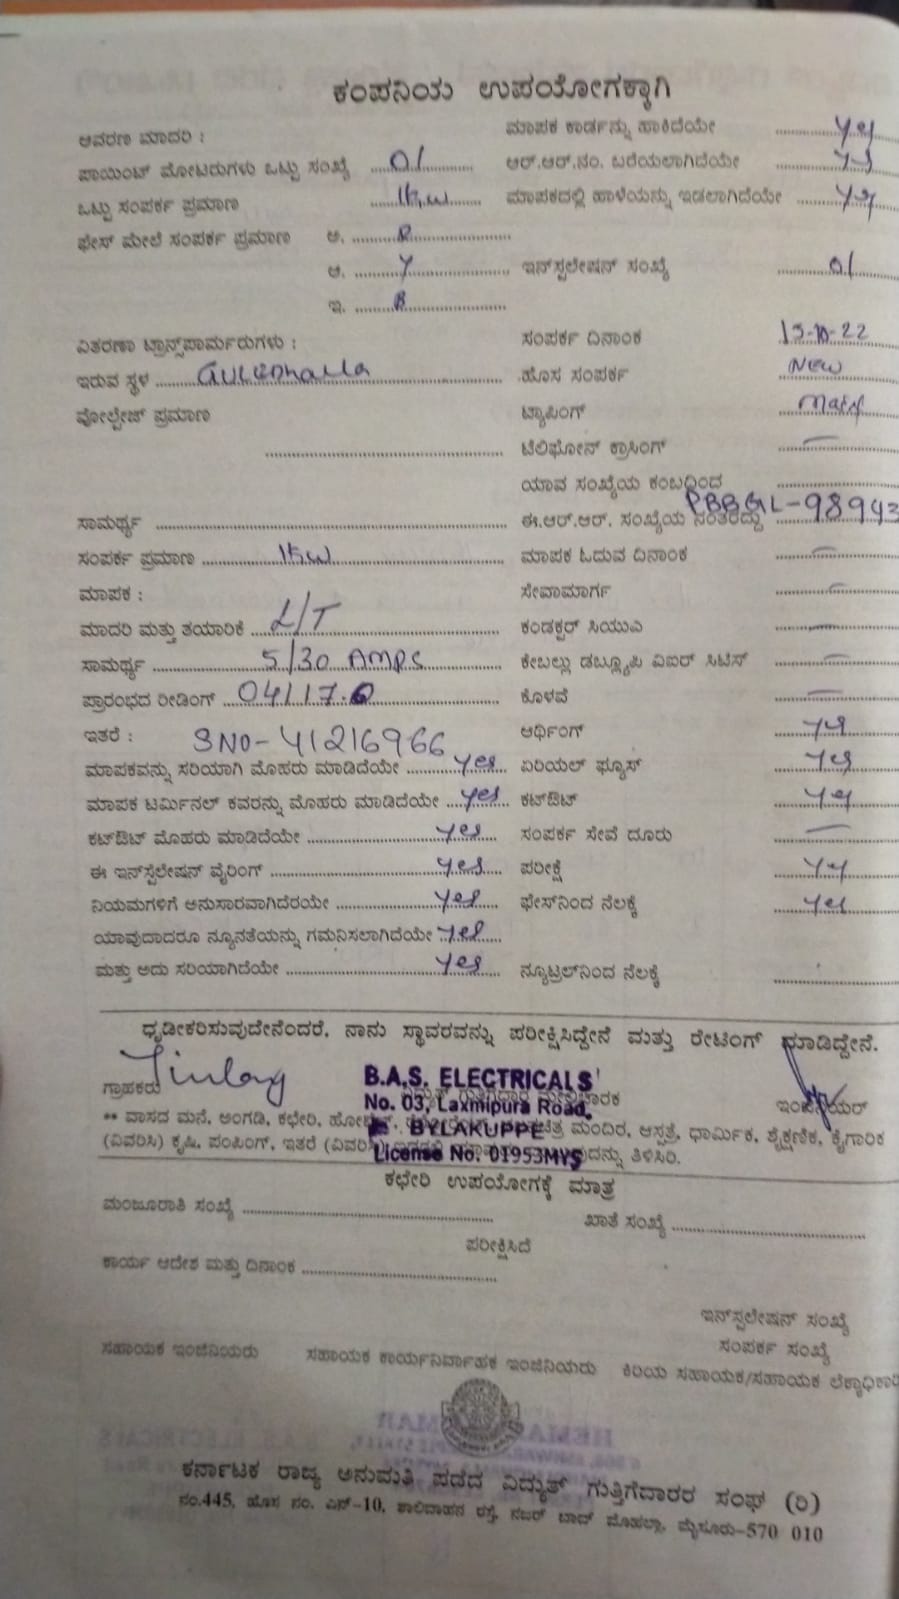 ಕಂಪನಿಯ ಉಪಯೋಗಕ್ಕಾಗಿ
ಆವರಣ ಮಾದರಿ : ಮಾಪಕ ಕಾರ್ಡನ್ನು ಹಾಕಿದೆಯೇ yes
ಪಾಯಿಂಟ್ ಮೋಟರುಗಳು ಒಟ್ಟು ಸಂಖ್ಯೆ 01 ಆರ್.ಆರ್.ನಂ. ಬರೆಯಲಾಗಿದೆಯೇ yes
ಒಟ್ಟು ಸಂಪರ್ಕ ಪ್ರಮಾಣ 1kw ಮಾಪಕದಲ್ಲಿ ಹಾಳೆಯನ್ನು ಇಡಲಾಗಿದೆಯೇ yes
ಫೇಸ್ ಮೇಲೆ ಸಂಪರ್ಕ ಪ್ರಮಾಣ ಅ. R
ಆ. Y ಇನ್‌ಸ್ಟಲೇಷನ್ ಸಂಖ್ಯೆ 01
ಇ. B
ವಿತರಣಾ ಟ್ರಾನ್ಸ್‌ಪಾರ್ಮರುಗಳು : ಸಂಪರ್ಕ ದಿನಾಂಕ 15-10-22
ಇರುವ ಸ್ಥಳ ಹೊಸ ಸಂಪರ್ಕ NEW
ವೋಲ್ಟೇಜ್ ಪ್ರಮಾಣ ಟ್ಯಾಪಿಂಗ್
ಟೆಲಿಫೋನ್ ಕ್ರಾಸಿಂಗ್ —
ಯಾವ ಸಂಖ್ಯೆಯ ಕಂಬದಿಂದ
ಸಾಮರ್ಥ್ಯ ಈ.ಆರ್.ಆರ್. ಸಂಖ್ಯೆಯ ನಂತರದ್ದು PBBGL-98943
ಸಂಪರ್ಕ ಪ್ರಮಾಣ 1kw ಮಾಪಕ ಓದುವ ದಿನಾಂಕ —
ಮಾಪಕ : ಸೇವಾಮಾರ್ಗ —
ಮಾದರಿ ಮತ್ತು ತಯಾರಿಕೆ L/T ಕಂಡಕ್ಟರ್ ಸಿಯುಎ —
ಸಾಮರ್ಥ್ಯ 5/30 AMPS ಕೇಬಲ್ಲು ಡಬ್ಲ್ಯೂಪಿ ವಿಐಆರ್ ಸಿಟಿಸ್ —
ಪ್ರಾರಂಭದ ರೀಡಿಂಗ್ 04117.0 ಕೊಳವೆ —
ಇತರೆ : SNO-41216966 ಆರ್ಥಿಂಗ್ yes
ಮಾಪಕವನ್ನು ಸರಿಯಾಗಿ ಮೊಹರು ಮಾಡಿದೆಯೇ yes ಏರಿಯಲ್ ಫ್ಯೂಸ್ yes
ಮಾಪಕ ಟರ್ಮಿನಲ್ ಕವರನ್ನು ಮೊಹರು ಮಾಡಿದೆಯೇ yes ಕಟ್‌ಔಟ್ yes
ಕಟ್‌ಔಟ್ ಮೊಹರು ಮಾಡಿದೆಯೇ yes ಸಂಪರ್ಕ ಸೇವೆ ದೂರು —
ಈ ಇನ್‌ಸ್ಟಲೇಷನ್ ವೈರಿಂಗ್ yes ಪರೀಕ್ಷೆ yes
ನಿಯಮಗಳಿಗೆ ಅನುಸಾರವಾಗಿದೆರಯೇ yes ಫೇಸ್‌ನಿಂದ ನೆಲಕ್ಕೆ yes
ಯಾವುದಾದರೂ ನ್ಯೂನತೆಯನ್ನು ಗಮನಿಸಲಾಗಿದೆಯೇ yes
ಮತ್ತು ಅದು ಸರಿಯಾಗಿದೆಯೇ yes ನ್ಯೂಟ್ರಲ್‌ನಿಂದ ನೆಲಕ್ಕೆ
ಧೃಡೀಕರಿಸುವುದೇನೆಂದರೆ, ನಾನು ಸ್ಥಾವರವನ್ನು ಪರೀಕ್ಷಿಸಿದ್ದೇನೆ ಮತ್ತು ರೇಟಿಂಗ್ ಮಾಡಿದ್ದೇನೆ.
ಗ್ರಾಹಕರು ಇಂಜಿನಿಯರ್
B.A.S. ELECTRICALS
No. 03, Laxmipura Road,
BYLAKUPPE
License No. 01953MYS
** ವಾಸದ ಮನೆ, ಅಂಗಡಿ, ಕಛೇರಿ, ಮಂದಿರ, ಆಸ್ಪತ್ರೆ, ಧಾರ್ಮಿಕ, ಶೈಕ್ಷಣಿಕ, ಕೈಗಾರಿಕ
(ವಿವರಿಸಿ) ಕೃಷಿ, ಪಂಪಿಂಗ್, ಇತರೆ ತಿಳಿಸಿರಿ.
ಕಛೇರಿ ಉಪಯೋಗಕ್ಕೆ ಮಾತ್ರ
ಮಂಜೂರಾತಿ ಸಂಖ್ಯೆ ಖಾತೆ ಸಂಖ್ಯೆ
ಪರೀಕ್ಷಿಸಿದೆ
ಕಾರ್ಯ ಆದೇಶ ಮತ್ತು ದಿನಾಂಕ
ಇನ್‌ಸ್ಟಲೇಷನ್ ಸಂಖ್ಯೆ
ಸಂಪರ್ಕ ಸಂಖ್ಯೆ
ಸಹಾಯಕ ಇಂಜಿನಿಯರು ಸಹಾಯಕ ಕಾರ್ಯನಿರ್ವಾಹಕ ಇಂಜಿನಿಯರು ಕಿರಿಯ ಸಹಾಯಕ/ಸಹಾಯಕ
ಕರ್ನಾಟಕ ರಾಜ್ಯ ಅನುಮತಿ ಪಡೆದ ವಿದ್ಯುತ್ ಗುತ್ತಿಗೆದಾರರ ಸಂಘ (ರಿ)
ನಂ.445, ಹೊಸ ನಂ. ಎನ್-10, ಶಾಲಿವಾಹನ ರಸ್ತೆ, ನಜರ್ ಬಾದ್ ಮೊಹಲ್ಲಾ, ಮೈಸೂರು-570 010